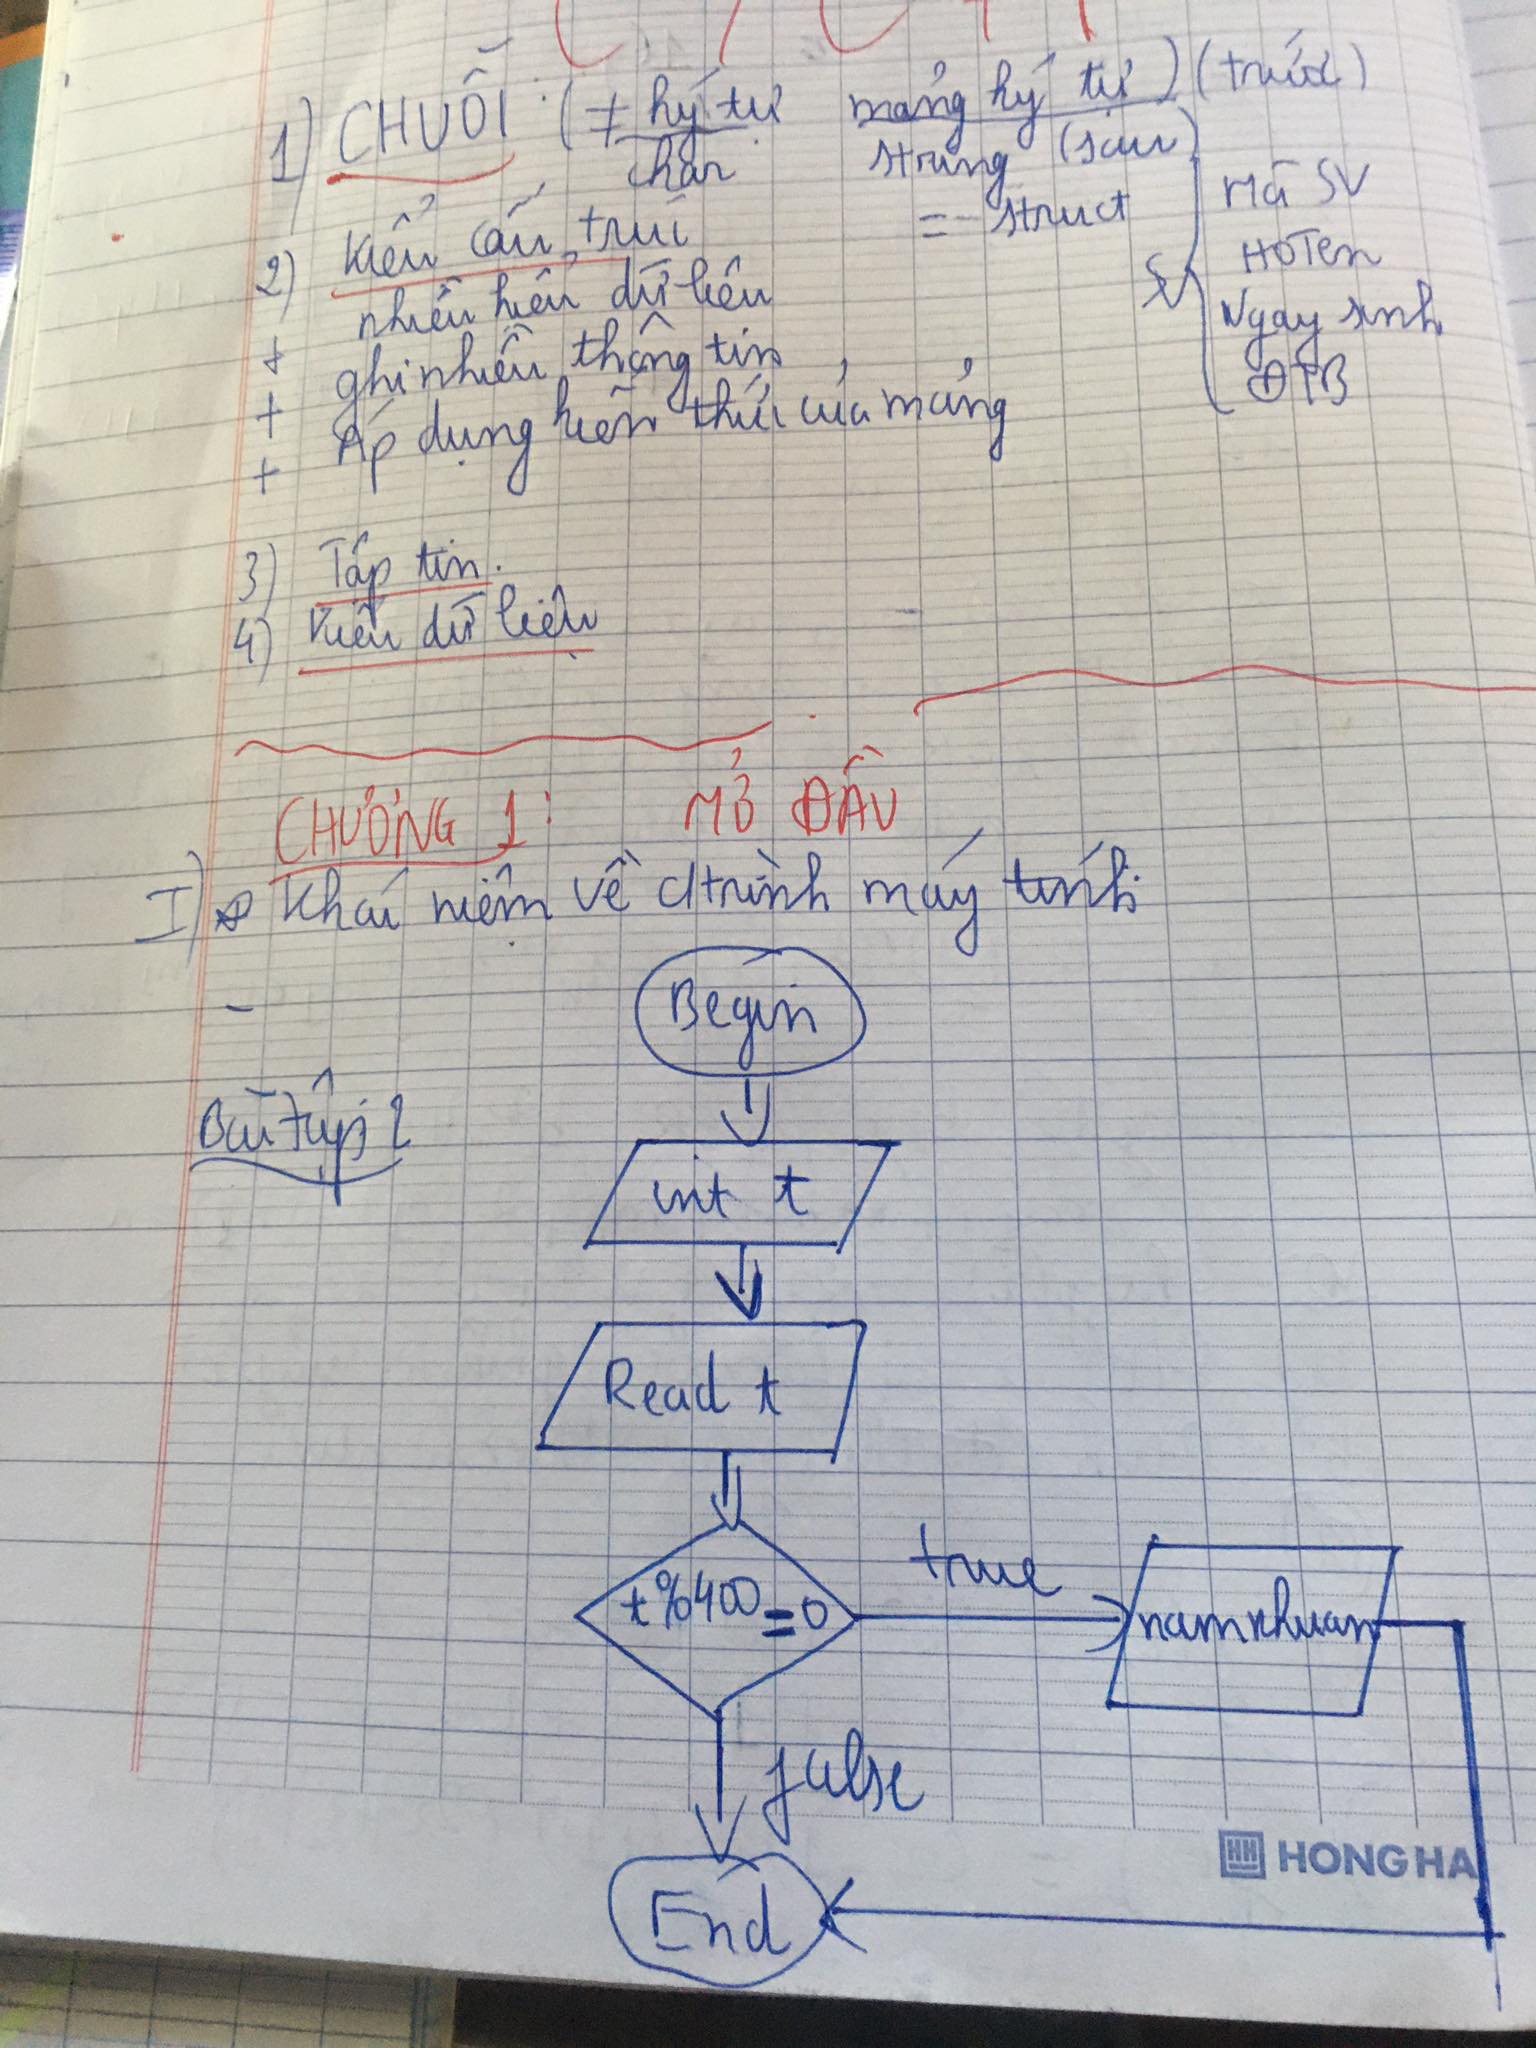 1) CHUỖI: (≠ ký tự mảng ký tự) (trước)
char string (sau)
2) Kiểu cấu trúc = struct
+ nhiều kiểu dữ liệu
+ ghi nhiều thông tin
+ Áp dụng kiến thức của mảng
Mã SV
HọTen
Ngay sinh
ĐTB
3) Tập tin.
4) Kiểu dữ liệu
CHƯƠNG 1: MỞ ĐẦU
I) Khái niệm về ctrình máy tính
-
Begin
Bài tập 2
int t
Read t
t%400==0
true
namnhuan
false
HONG HA
End